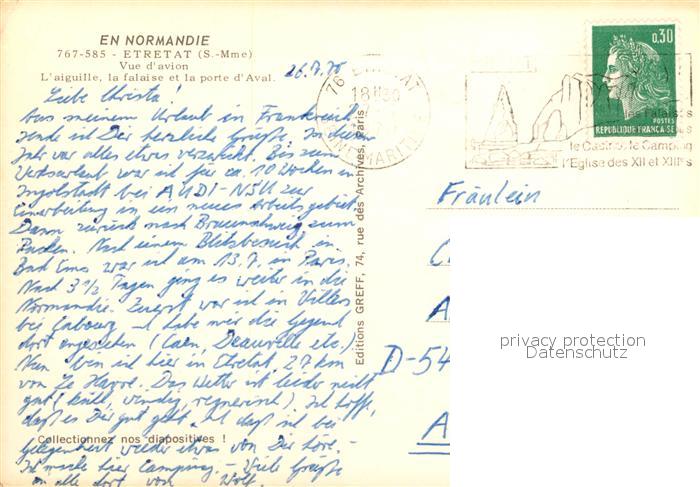 EN NORMANDIE
767-585 - ETRETAT (S.-Mme)
Vue d'avion
L'aiguille, la falaise et la porte d'Aval.
26.7.70
Liebe Christa!
Aus meinem Urlaub in Frankreich
sende ich Dir herzliche Grüße. In diesem
Jahr war alles etwas verzwickt. Bis zum
war ich für ca. 10 Wochen in
Ingolstadt bei AUDI-NSU zur
Einarbeitung in ein neues Arbeitsgebiet.
Dann zurück nach Braunschweig zum
Packen. Nach einem Blitzbesuch in
Bad Ems war ich am 13.7. in Paris.
Nach 3 1/2 Tagen ging es weiter in die
Normandie. Zuerst war ich in Villers
bei Cabourg und habe mir die Gegend
dort angesehen (Caen, Deauville etc.)
Nun bin ich hier in Etretat, 27 km
von Le Havre. Das Wetter ist leider nicht
gut (kühl, windig, regnerisch). Ich hoffe,
daß es Dir gut geht und daß ich bei
Collectionnez nos diapositives !
Gelegenheit wieder etwas von Dir höre. -
Ich mache hier Camping. - Viele Grüße
an alle dort von Wolf.
Editions GREFF, 74, rue des Archives, Paris
76 ETRETAT
18H30
NE MARITIME
0,30
POSTES
REPUBLIQUE FRANÇAISE
ses Falaises
le Casino le Camping
l'Eglise des XII et XIII s
Fräulein
C
A
D-54
A
privacy protection
Datenschutz